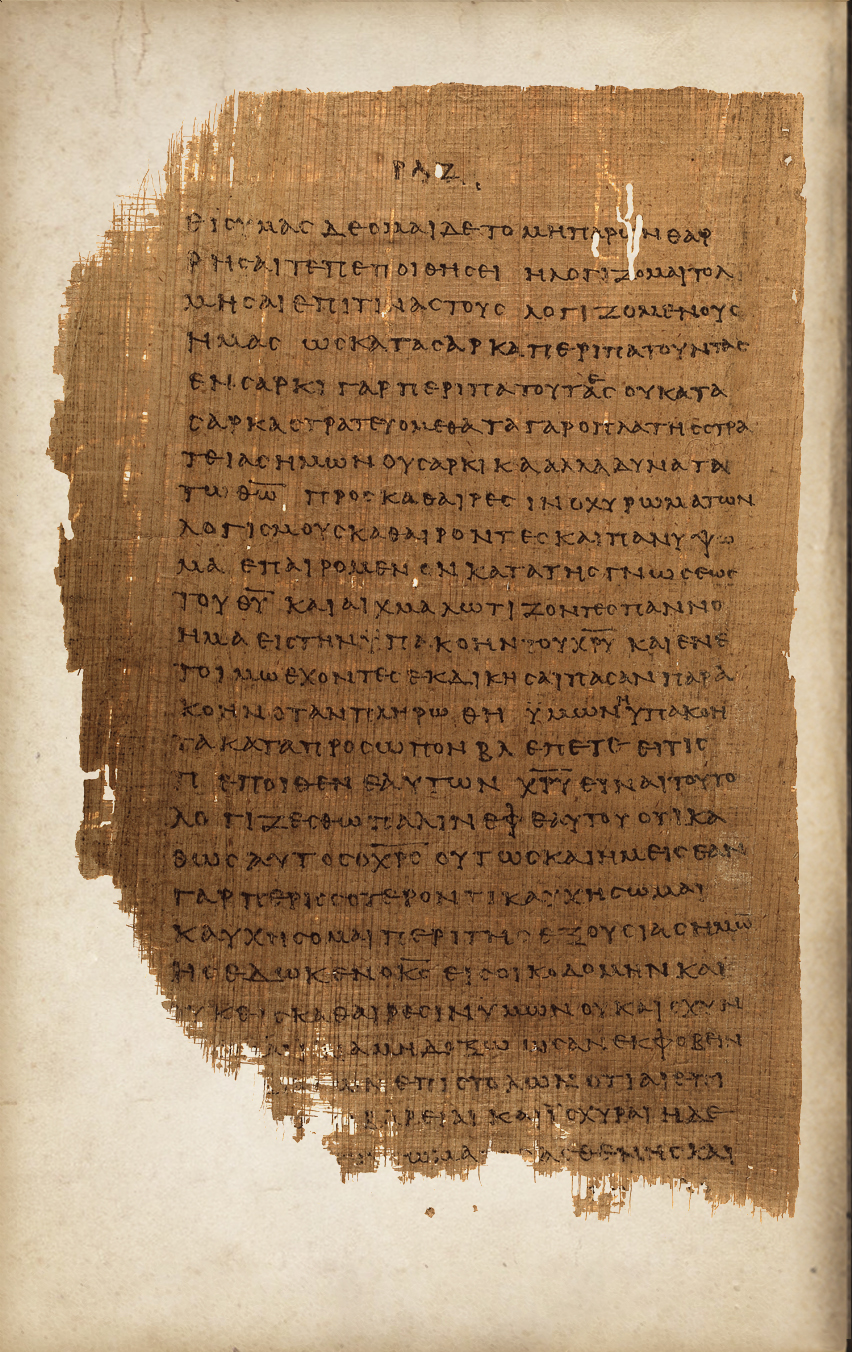 ΡΛΖ
ΘΙϹΥΜΑϹ ΔΕΟΜΑΙ ΔΕ ΤΟ ΜΗ ΠΑΡΩΝ ΘΑΡ
ΡΗϹΑΙ ΤΗ ΠΕΠΟΙΘΗϹΕΙ Η ΛΟΓΙΖΟΜΑΙ ΤΟΛ
ΜΗϹΑΙ ΕΠΙ ΤΙΝΑϹ ΤΟΥϹ ΛΟΓΙΖΟΜΕΝΟΥϹ
ΗΜΑϹ ΩϹ ΚΑΤΑ ϹΑΡΚΑ ΠΕΡΙΠΑΤΟΥΝΤΑϹ
ΕΝ ϹΑΡΚΙ ΓΑΡ ΠΕΡΙΠΑΤΟΥΤΑΕϹ ΟΥ ΚΑΤΑ
ϹΑΡΚΑ ϹΤΡΑΤΕΥΟΜΕΘΑ ΤΑ ΓΑΡ ΟΠΛΑ ΤΗϹ ϹΤΡΑ
ΤΕΙΑϹ ΗΜΩΝ ΟΥ ϹΑΡΚΙΚΑ ΑΛΛΑ ΔΥΝΑΤΑ
ΤΩ ΘΩ̅ ΠΡΟϹ ΚΑΘΑΙΡΕϹΙΝ ΟΧΥΡΩΜΑΤΩΝ
ΛΟΓΙϹΜΟΥϹ ΚΑΘΑΙΡΟΝΤΕϹ ΚΑΙ ΠΑΝ ΥΨΩ
ΜΑ ΕΠΑΙΡΟΜΕΝΟΝ ΚΑΤΑ ΤΗϹ ΓΝΩϹΕΩϹ
ΤΟΥ Θ̅Υ̅ ΚΑΙ ΑΙΧΜΑΛΩΤΙΖΟΝΤΕϹ ΠΑΝ ΝΟ
ΗΜΑ ΕΙϹ ΤΗΝ ΥΠΑΚΟΗΝ ΤΟΥ Χ̅Ρ̅Υ̅ ΚΑΙ ΕΝ Ε
ΤΟΙΜΩ ΕΧΟΝΤΕϹ ΕΚΔΙΚΗϹΑΙ ΠΑϹΑΝ ΠΑΡΑ
ΚΟΗΝ ΟΤΑΝ ΠΛΗΡΩΘΗ ΫΜΩΝ Η ΫΠΑΚΟΗ
ΤΑ ΚΑΤΑ ΠΡΟϹΩΠΟΝ ΒΛΕΠΕΤΕ ΕΙ ΤΙϹ
ΠΕΠΟΙΘΕΝ ΕΑΥΤΩΝ Χ̅Ρ̅Υ̅ ΕΙΝΑΙ ΤΟΥΤΟ
ΛΟΓΙΖΕϹΘΩ ΠΑΛΙΝ ΕΦ ΕΑΥΤΟΥ ΟΤΙ ΚΑ
ΘΩϹ ΑΥΤΟϹ Ο Χ̅Ρ̅Ϲ̅ ΟΥΤΩϹ ΚΑΙ ΗΜΕΙϹ ΕΑΝ
ΓΑΡ ΠΕΡΙϹϹΟΤΕΡΟΝ ΤΙ ΚΑΥΧΗϹΩΜΑΙ
ΚΑΥΧΗϹΟΜΑΙ ΠΕΡΙ ΤΗϹ ΕΞΟΥϹΙΑϹ ΗΜΩ̅
ΗϹ ΕΔΩΚΕΝ Ο Κ̅Ϲ̅ ΕΙϹ ΟΙΚΟΔΟΜΗΝ ΚΑΙ
ΟΥΚ ΕΙϹ ΚΑΘΑΙΡΕϹΙΝ ΥΜΩΝ ΟΥΚ ΑΙϹΧΥΝ
ΙΝΑ ΜΗ ΔΟΞΩ ΩϹ ΑΝ ΕΚΦΟΒΕΙΝ
ΕΠΙϹΤΟΛΩΝ ΟΤΙ ΑΙ ΕΠΙ
ΒΑΡΕΙΑΙ ΚΑΙ ΪϹΧΥΡΑΙ Η ΔΕ
ΩΜΑ ΑϹΘΕΝΗϹ ΚΑΙ